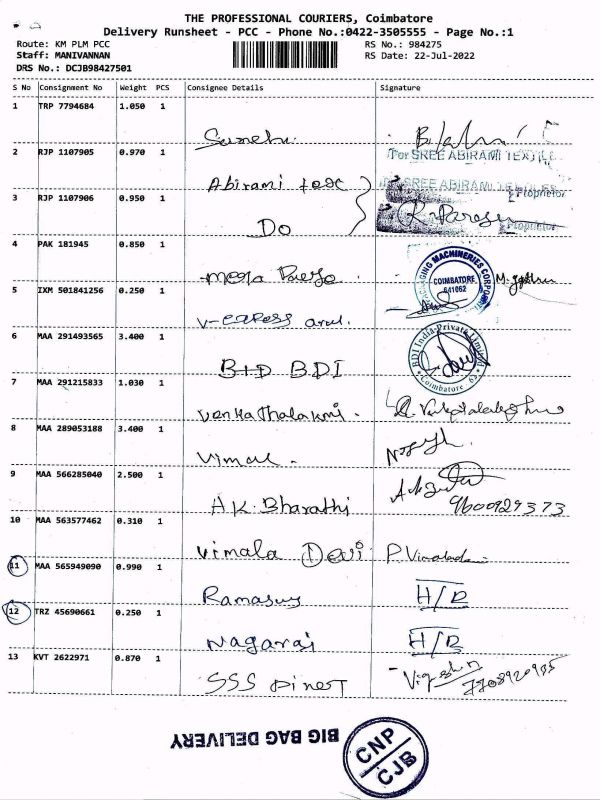 THE PROFESSIONAL COURIERS, Coimbatore
Delivery Runsheet - PCC - Phone No.:0422-3505555 - Page No.:1
Route: KM PLM PCC RS No.: 984275
Staff: MANIVANNAN RS Date: 22-Jul-2022
DRS No.: DCJB98427501
S No Consignment No Weight PCS Consignee Details Signature
1 TRP 7794684 1.050 1
2 RJP 1107905 0.970 1
For SREE ABIRAMI TEXTILE
Abirami tex
SREE ABIRAMI TEXTILES
Proprietor
3 RJP 1107906 0.950 1
Do
Proprietor
4 PAK 181945 0.850 1
PACKAGING MACHINERIES CORPORATION
COIMBATORE
641062
5 IXM 501841256 0.250 1
V-express arul.
6 MAA 291493565 3.400 1
BDI India Private Limited
Coimbatore - 62
BDI
7 MAA 291215833 1.030 1
Venkathalakmi.
8 MAA 289053188 3.400 1
Vimal.
9 MAA 566285040 2.500 1
A.K. Bharathi
9600929373
10 MAA 563577462 0.310 1
Vimala Devi P. Vimaladevi
11 MAA 565949090 0.990 1
Ramasuy H/R
12 TRZ 45690661 0.250 1
Nagaraj H/R
13 KVT 2622971 0.870 1
SSS Dinest
7708920985
BIG BAG DELIVERY
CNP
CJB